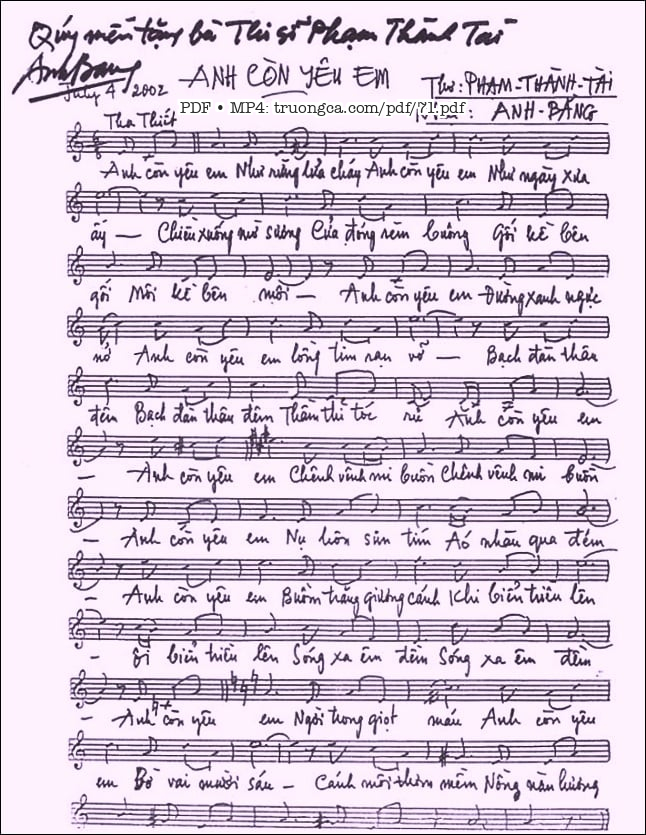 Qúy mến tặng bà Thi sĩ Phạm Thành Tài
Anh Bang
July 4 2002
ANH CÒN YÊU EM
Thơ: PHẠM-THÀNH-TÀI
PDF • MP4: truongca.com/pdf/71.pdf
ANH-BẰNG
Tha Thiết
Anh còn yêu em Như rừng lửa cháy Anh còn yêu em Như ngày xưa
ấy — Chiều xuống mù sương Cửa đóng rèm buông Gối kề bên
gối Môi kề bên môi — Anh còn yêu em Đường xanh ngực
nở Anh còn yêu em lồng tim rạn vỡ — Bạch đàn thâu
đêm Bạch đàn thâu đêm Thầm thì tóc rũ Anh còn yêu em
— Anh còn yêu em Chênh vênh mi buồn Chênh vênh mi buồn
— Anh còn yêu em Nụ hôn sim tím Áo nhàu qua đêm
— Anh còn yêu em Buồm trăng giương cánh Khi biển triều lên
— biển triều lên Sóng xa êm đềm Sóng xa êm đềm
— Anh còn yêu em Ngời trong giọt máu Anh còn yêu
em Bờ vai mười sáu — Cánh môi thơm mềm Nồng nàn hương